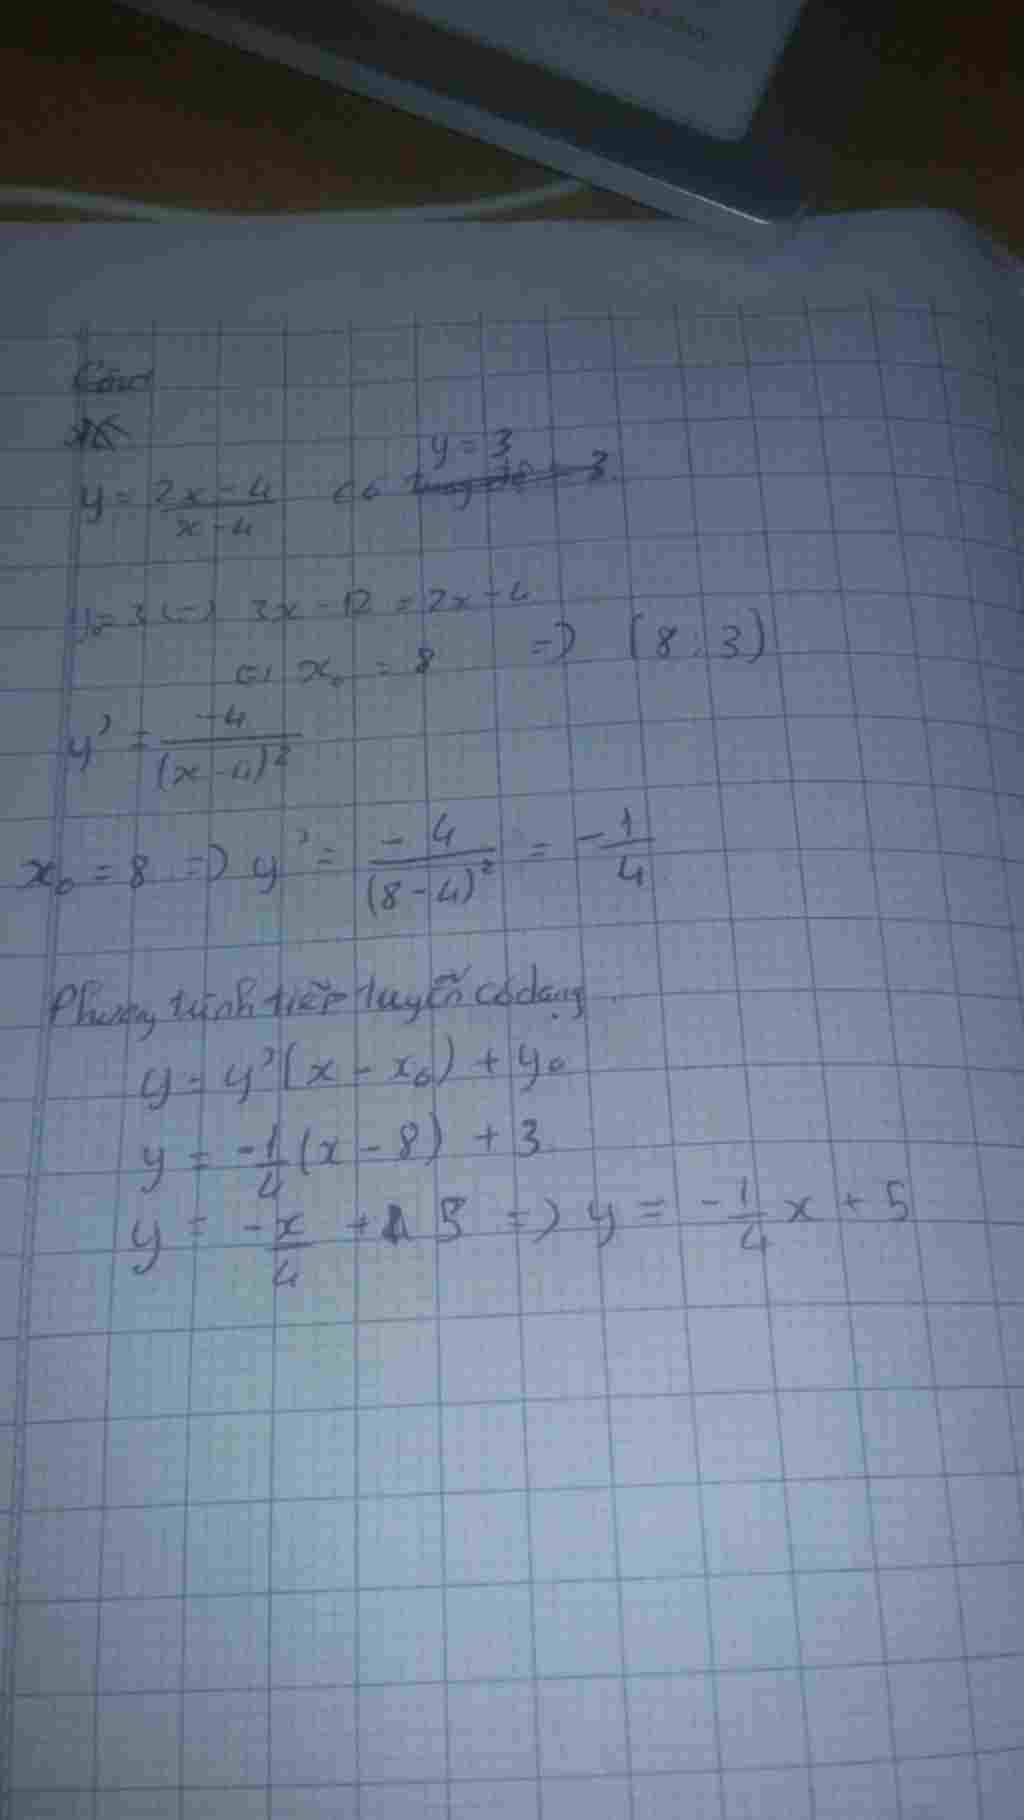 y = 3
y = (2x - 4)/(x - 4) có
y₀ = 3 <=> 3x - 12 = 2x - 4
<=> x₀ = 8 => (8 ; 3)
y' = -4/(x - 4)²
x₀ = 8 => y' = -4/(8 - 4)² = -1/4
Phương trình tiếp tuyến có dạng
y = y'(x - x₀) + y₀
y = -1/4 (x - 8) + 3
y = -x/4 + 5 => y = -1/4 x + 5